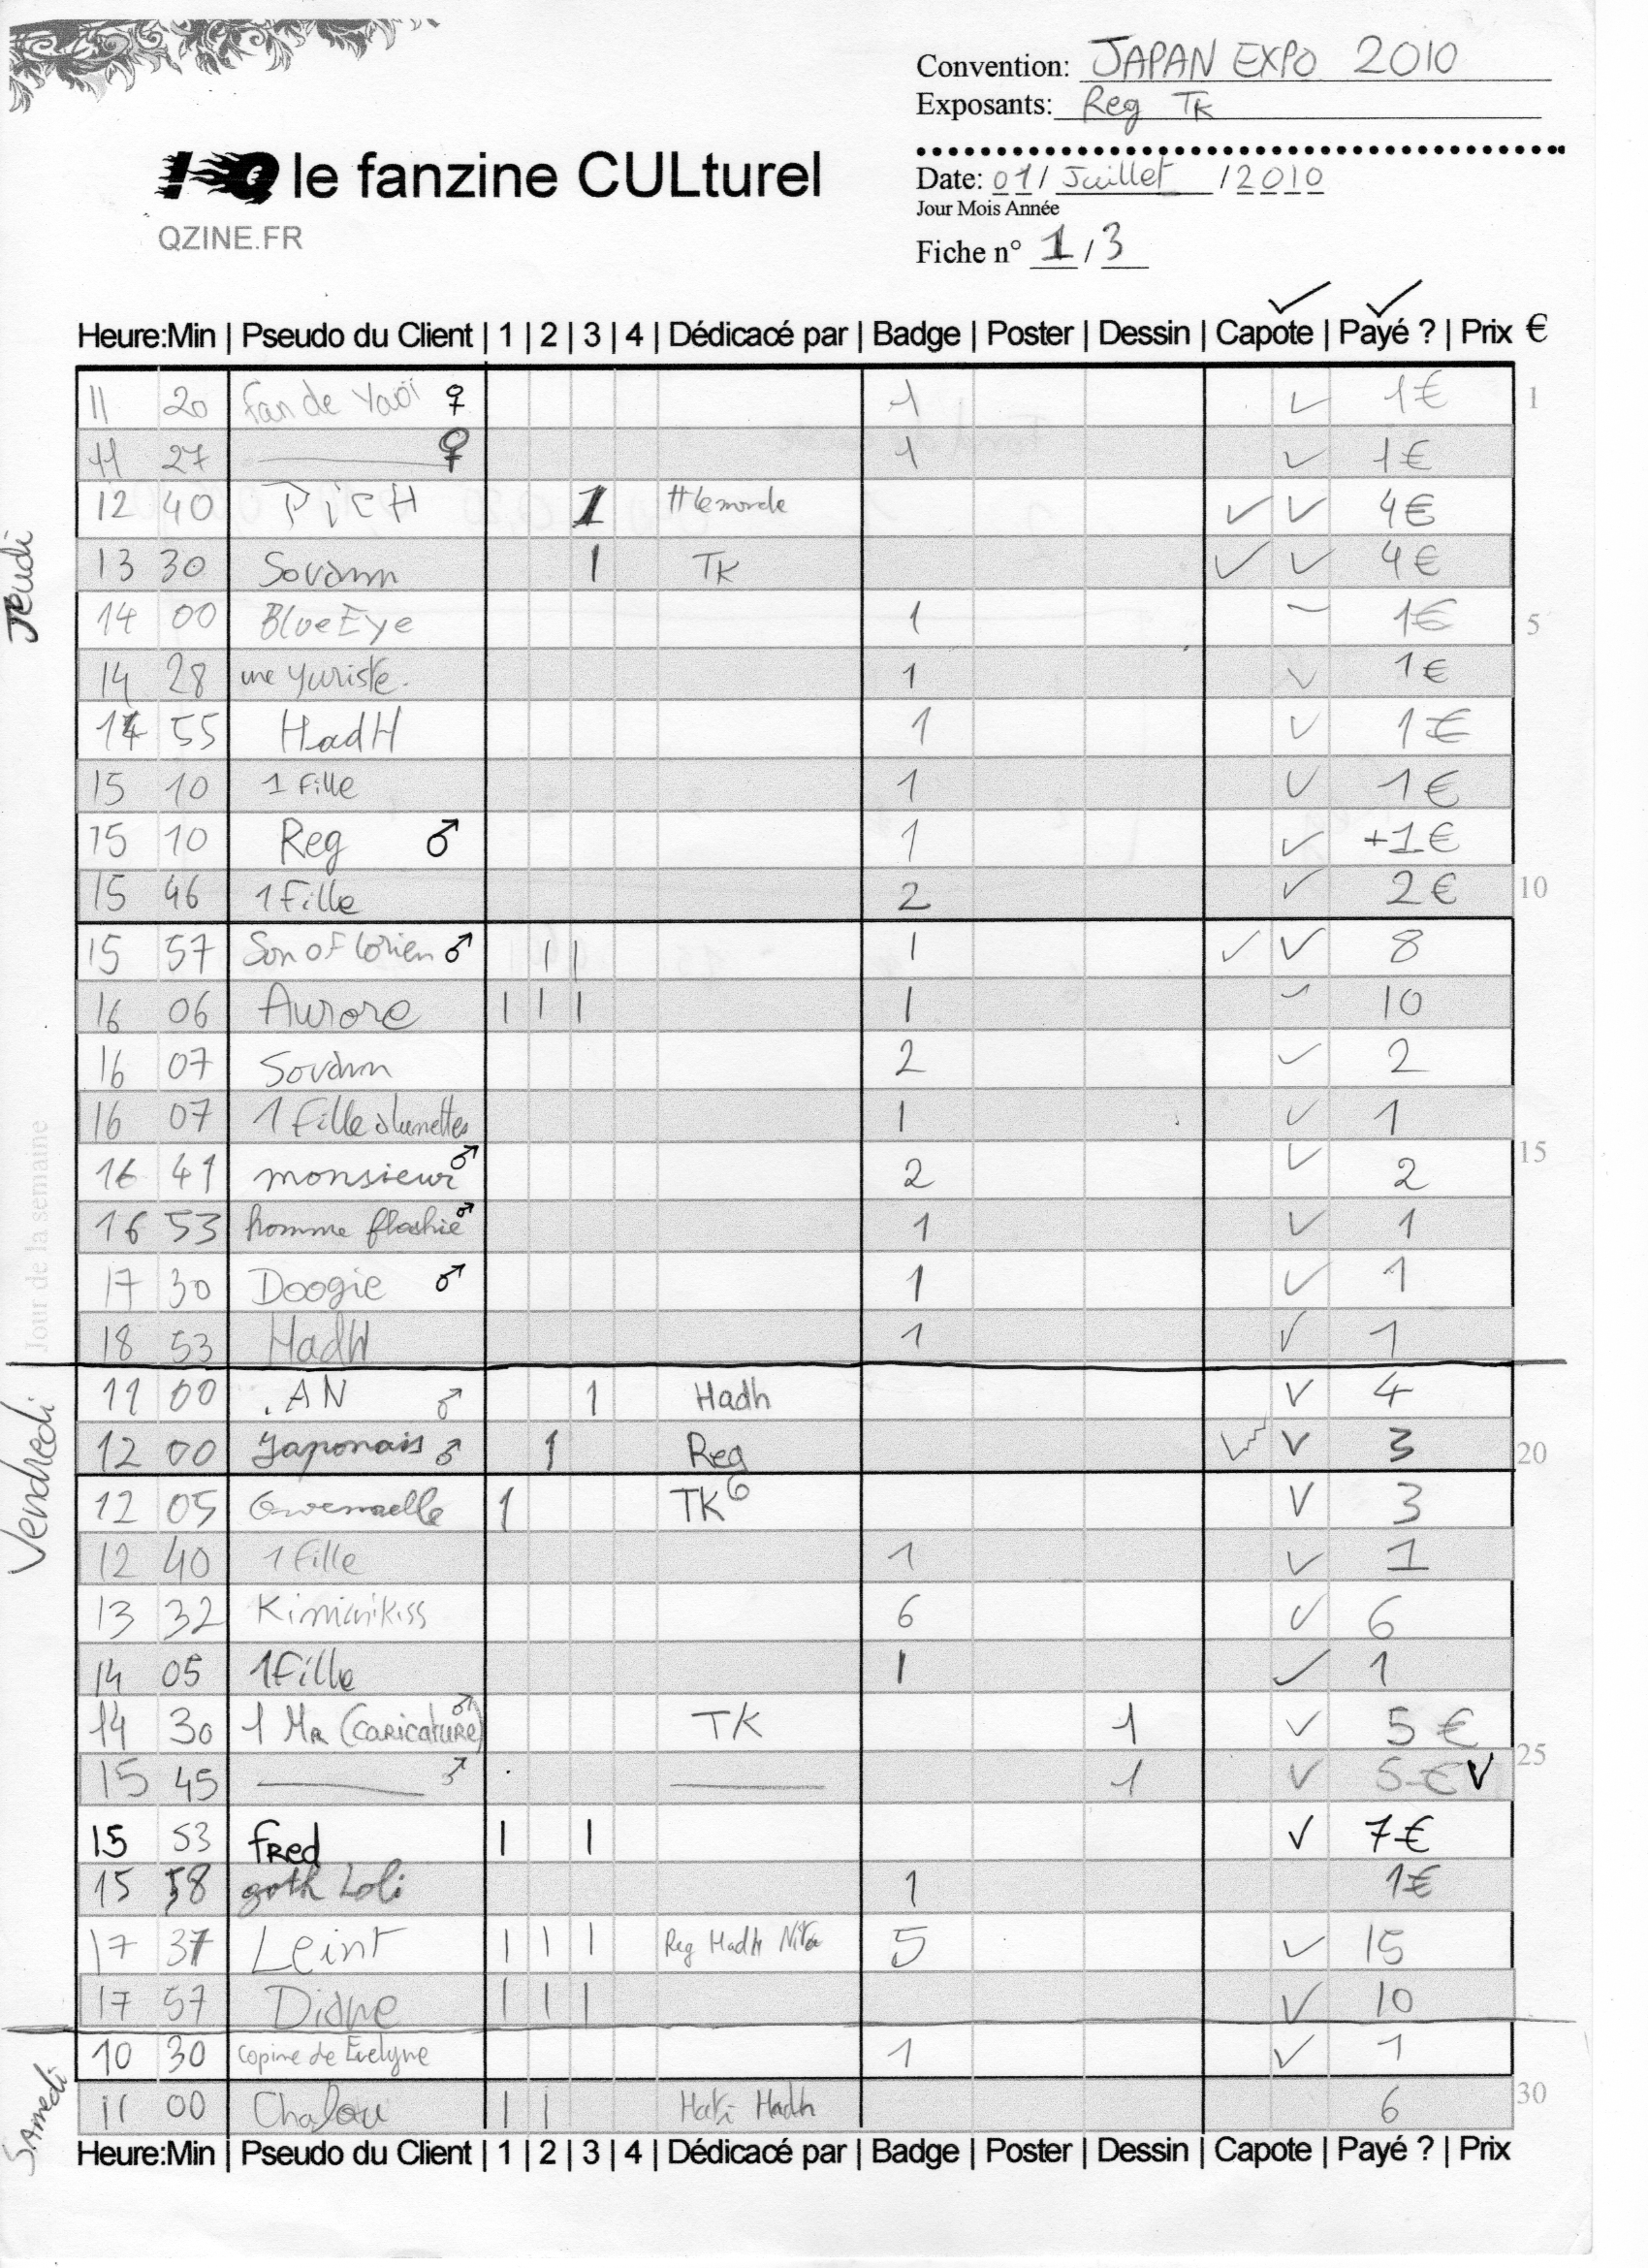 Convention: JAPAN EXPO 2010
Exposants: Reg TK
le fanzine CULturel
QZINE.FR
Date: 01 / Juillet / 2010
Jour Mois Année
Fiche n° 1 / 3
Heure:Min | Pseudo du Client | 1 | 2 | 3 | 4 | Dédicacé par | Badge | Poster | Dessin | Capote | Payé ? | Prix €
Jeudi
11 20 fan de Yaoï ♀ 1 ✓ 1€ 1
11 27 ♀ 1 ✓ 1€
12 40 PicH 1 tt le monde ✓ ✓ 4€
13 30 Sovann 1 TK ✓ ✓ 4€
14 00 BlueEye 1 ✓ 1€ 5
14 28 une yuriste. 1 ✓ 1€
14 55 HadH 1 ✓ 1€
15 10 1 fille 1 ✓ 1€
15 10 Reg ♂ 1 ✓ +1€
15 46 1 fille 2 ✓ 2€ 10
15 57 Son of lorien ♂ | | 1 ✓ ✓ 8
16 06 Aurore | | | 1 ✓ 10
16 07 Sovann 2 ✓ 2
16 07 1 fille à lunettes 1 ✓ 1
16 41 monsieur ♂ 2 ✓ 2 15
16 53 homme flashie ♂ 1 ✓ 1
17 30 Doogie ♂ 1 ✓ 1
18 53 HadH 1 ✓ 1
Jour de la semaine
Vendredi
11 00 .AN ♂ 1 Hadh ✓ 4
12 00 Japonais ♂ 1 Reg ✓ ✓ 3 20
12 05 Gwenaelle 1 TK ✓ 3
12 40 1 fille 1 ✓ 1
13 32 Kimikiss 6 ✓ 6
14 05 1 fille 1 ✓ 1
14 30 1 Mr (caricature) ♂ TK 1 ✓ 5 €
15 45 ♂ 1 ✓ 5 € ✓ 25
15 53 fred | | ✓ 7€
15 58 goth Loli 1 1€
17 37 Leint | | | Reg Hadh 5 ✓ 15
17 57 Diane | | | ✓ 10
Samedi
10 30 copine de Evelyne 1 ✓ 1
11 00 Chalou | | Hadh 6 30
Heure:Min | Pseudo du Client | 1 | 2 | 3 | 4 | Dédicacé par | Badge | Poster | Dessin | Capote | Payé ? | Prix